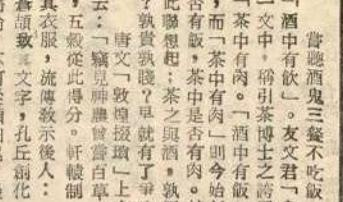 嘗聽酒鬼三餐不吃飯
「酒中有飲」。友文君「
一文中，稱引茶博士之誇
「茶中有肉。「酒中有飯
，而「茶中有肉」則今始
否有飯，茶中是否有肉。
此聯想起：茶之與酒，孰
？孰貴孰賤？早就有了爭
唐文「敦煌掇瑣」上
云：「竊見神農曾嘗百草
，五穀從此得分。軒轅制
其衣服，流傳敎示後人：
蒼頡致其文字，孔丘創化